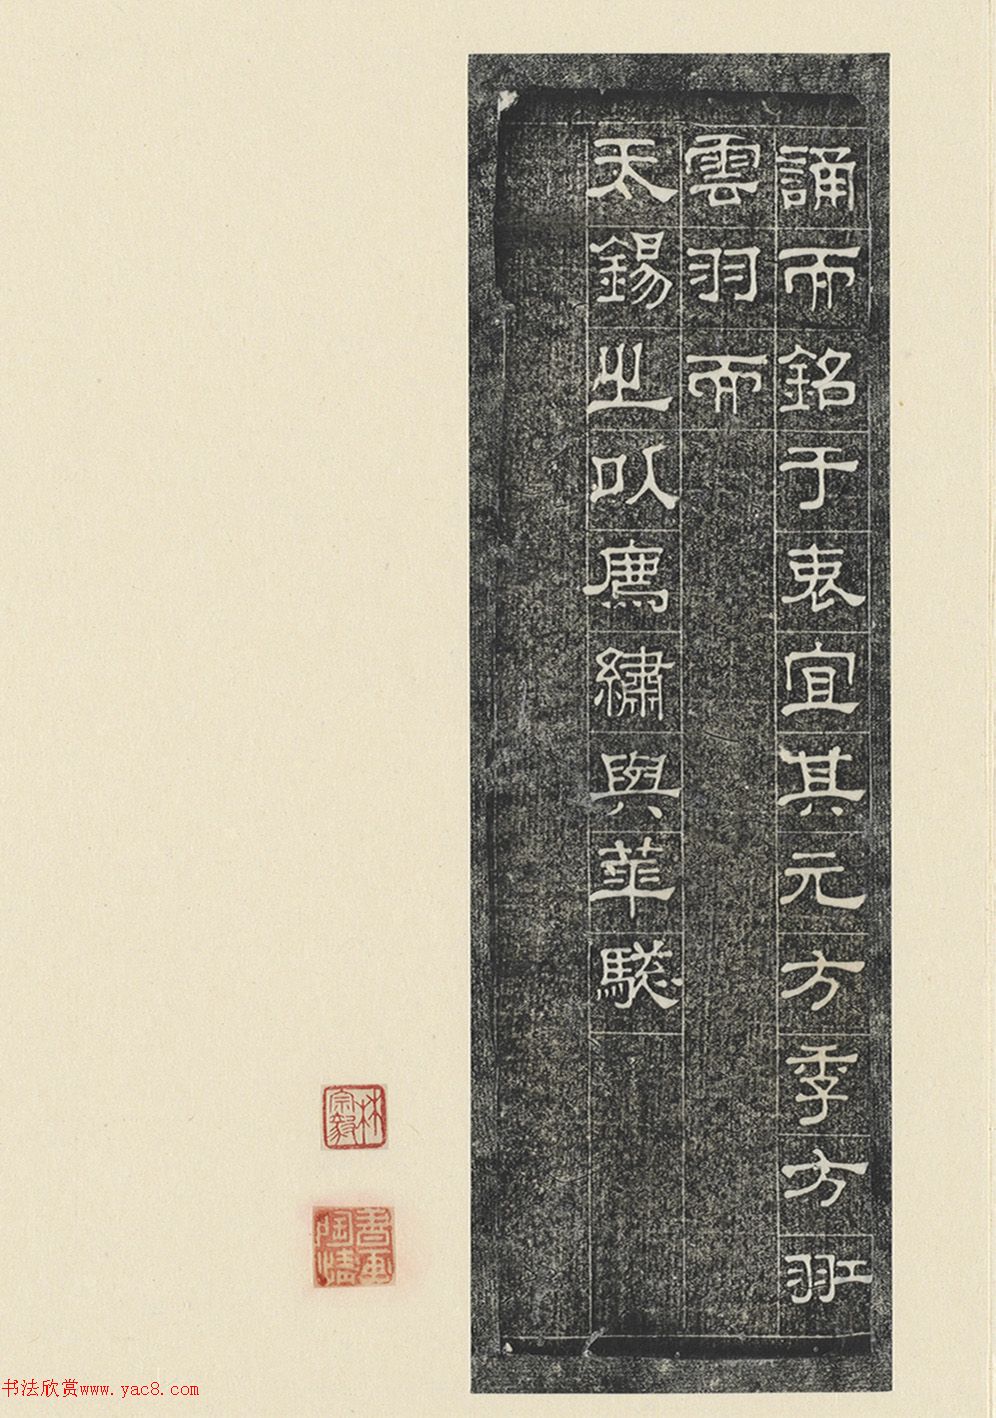 誦而銘于衷宜其元方季方羽工
雲羽而
天錫之以廌繡與華騣
林宗毅
書畫陶情
书法欣赏www.yac8.com